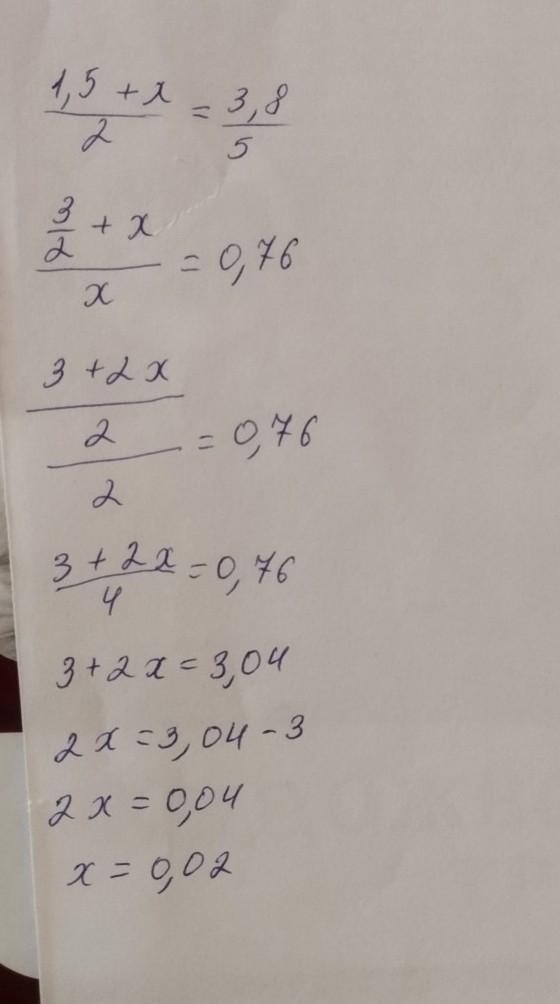 (1,5 + x)/2 = 3,8/5
(3/2 + x)/x = 0,76
((3 + 2x)/2)/2 = 0,76
(3 + 2x)/4 = 0,76
3 + 2x = 3,04
2x = 3,04 - 3
2x = 0,04
x = 0,02